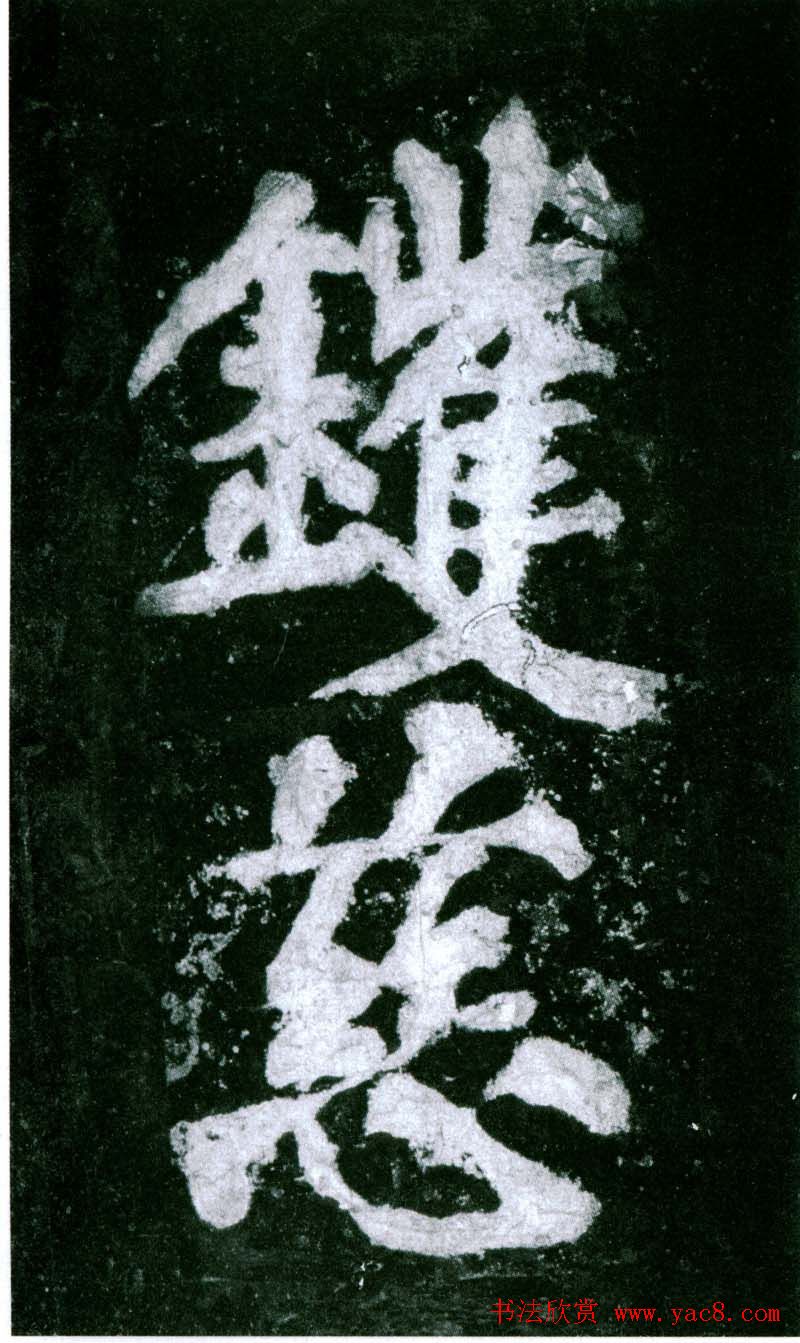 鑊
慈
书法欣赏 www.yac8.com